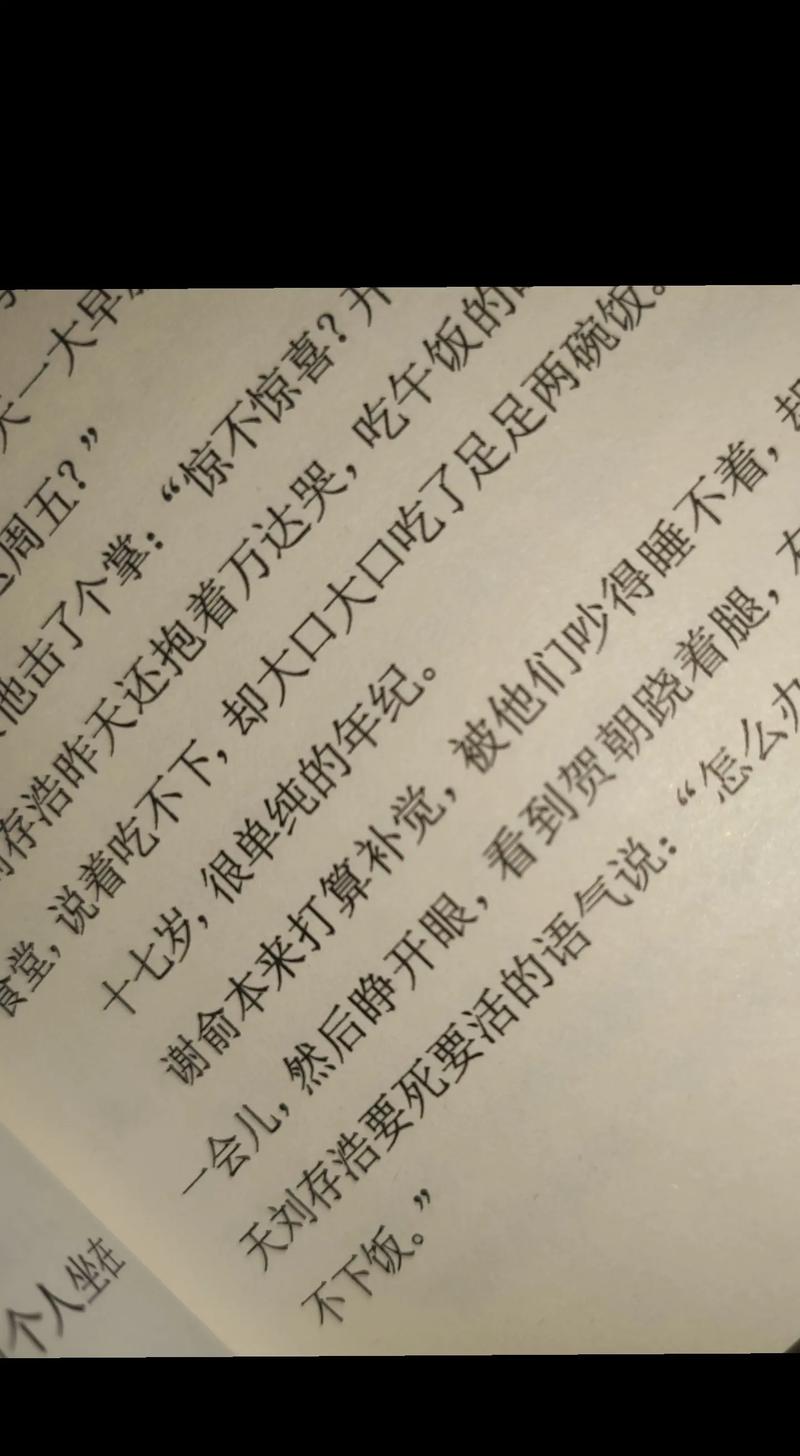 天一大早
周五？”
他击了个掌：“惊不惊喜？开
存浩昨天还抱着万达哭，吃午饭的
食堂，说着吃不下，却大口大口吃了足足两碗饭。
十七岁，很单纯的年纪。
谢俞本来打算补觉，被他们吵得睡不着，却
一会儿，然后睁开眼，看到贺朝跷着腿，
天刘存浩要死要活的语气说：“怎么办
不下饭。”
个人坐在